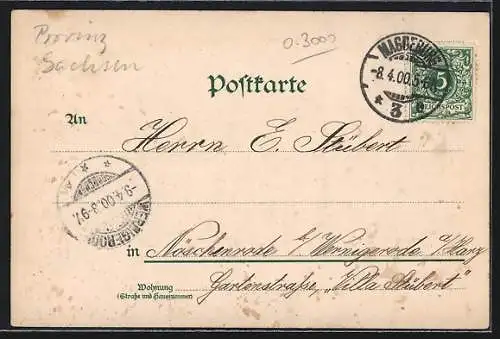 Provinz
Sachsen
0.3000
MAGDEBURG
-8.4.00.5-6
* 3
5
REICHSPOST
Postkarte
An
Herrn E. Stübert
-9.4.00.8-9V.
WERNIGERODE
in Nöschenrode b/ Wernigerode a/Harz
Wohnung
(Straße und Hausnummer)
Gartenstrasse, "Villa Stübert"